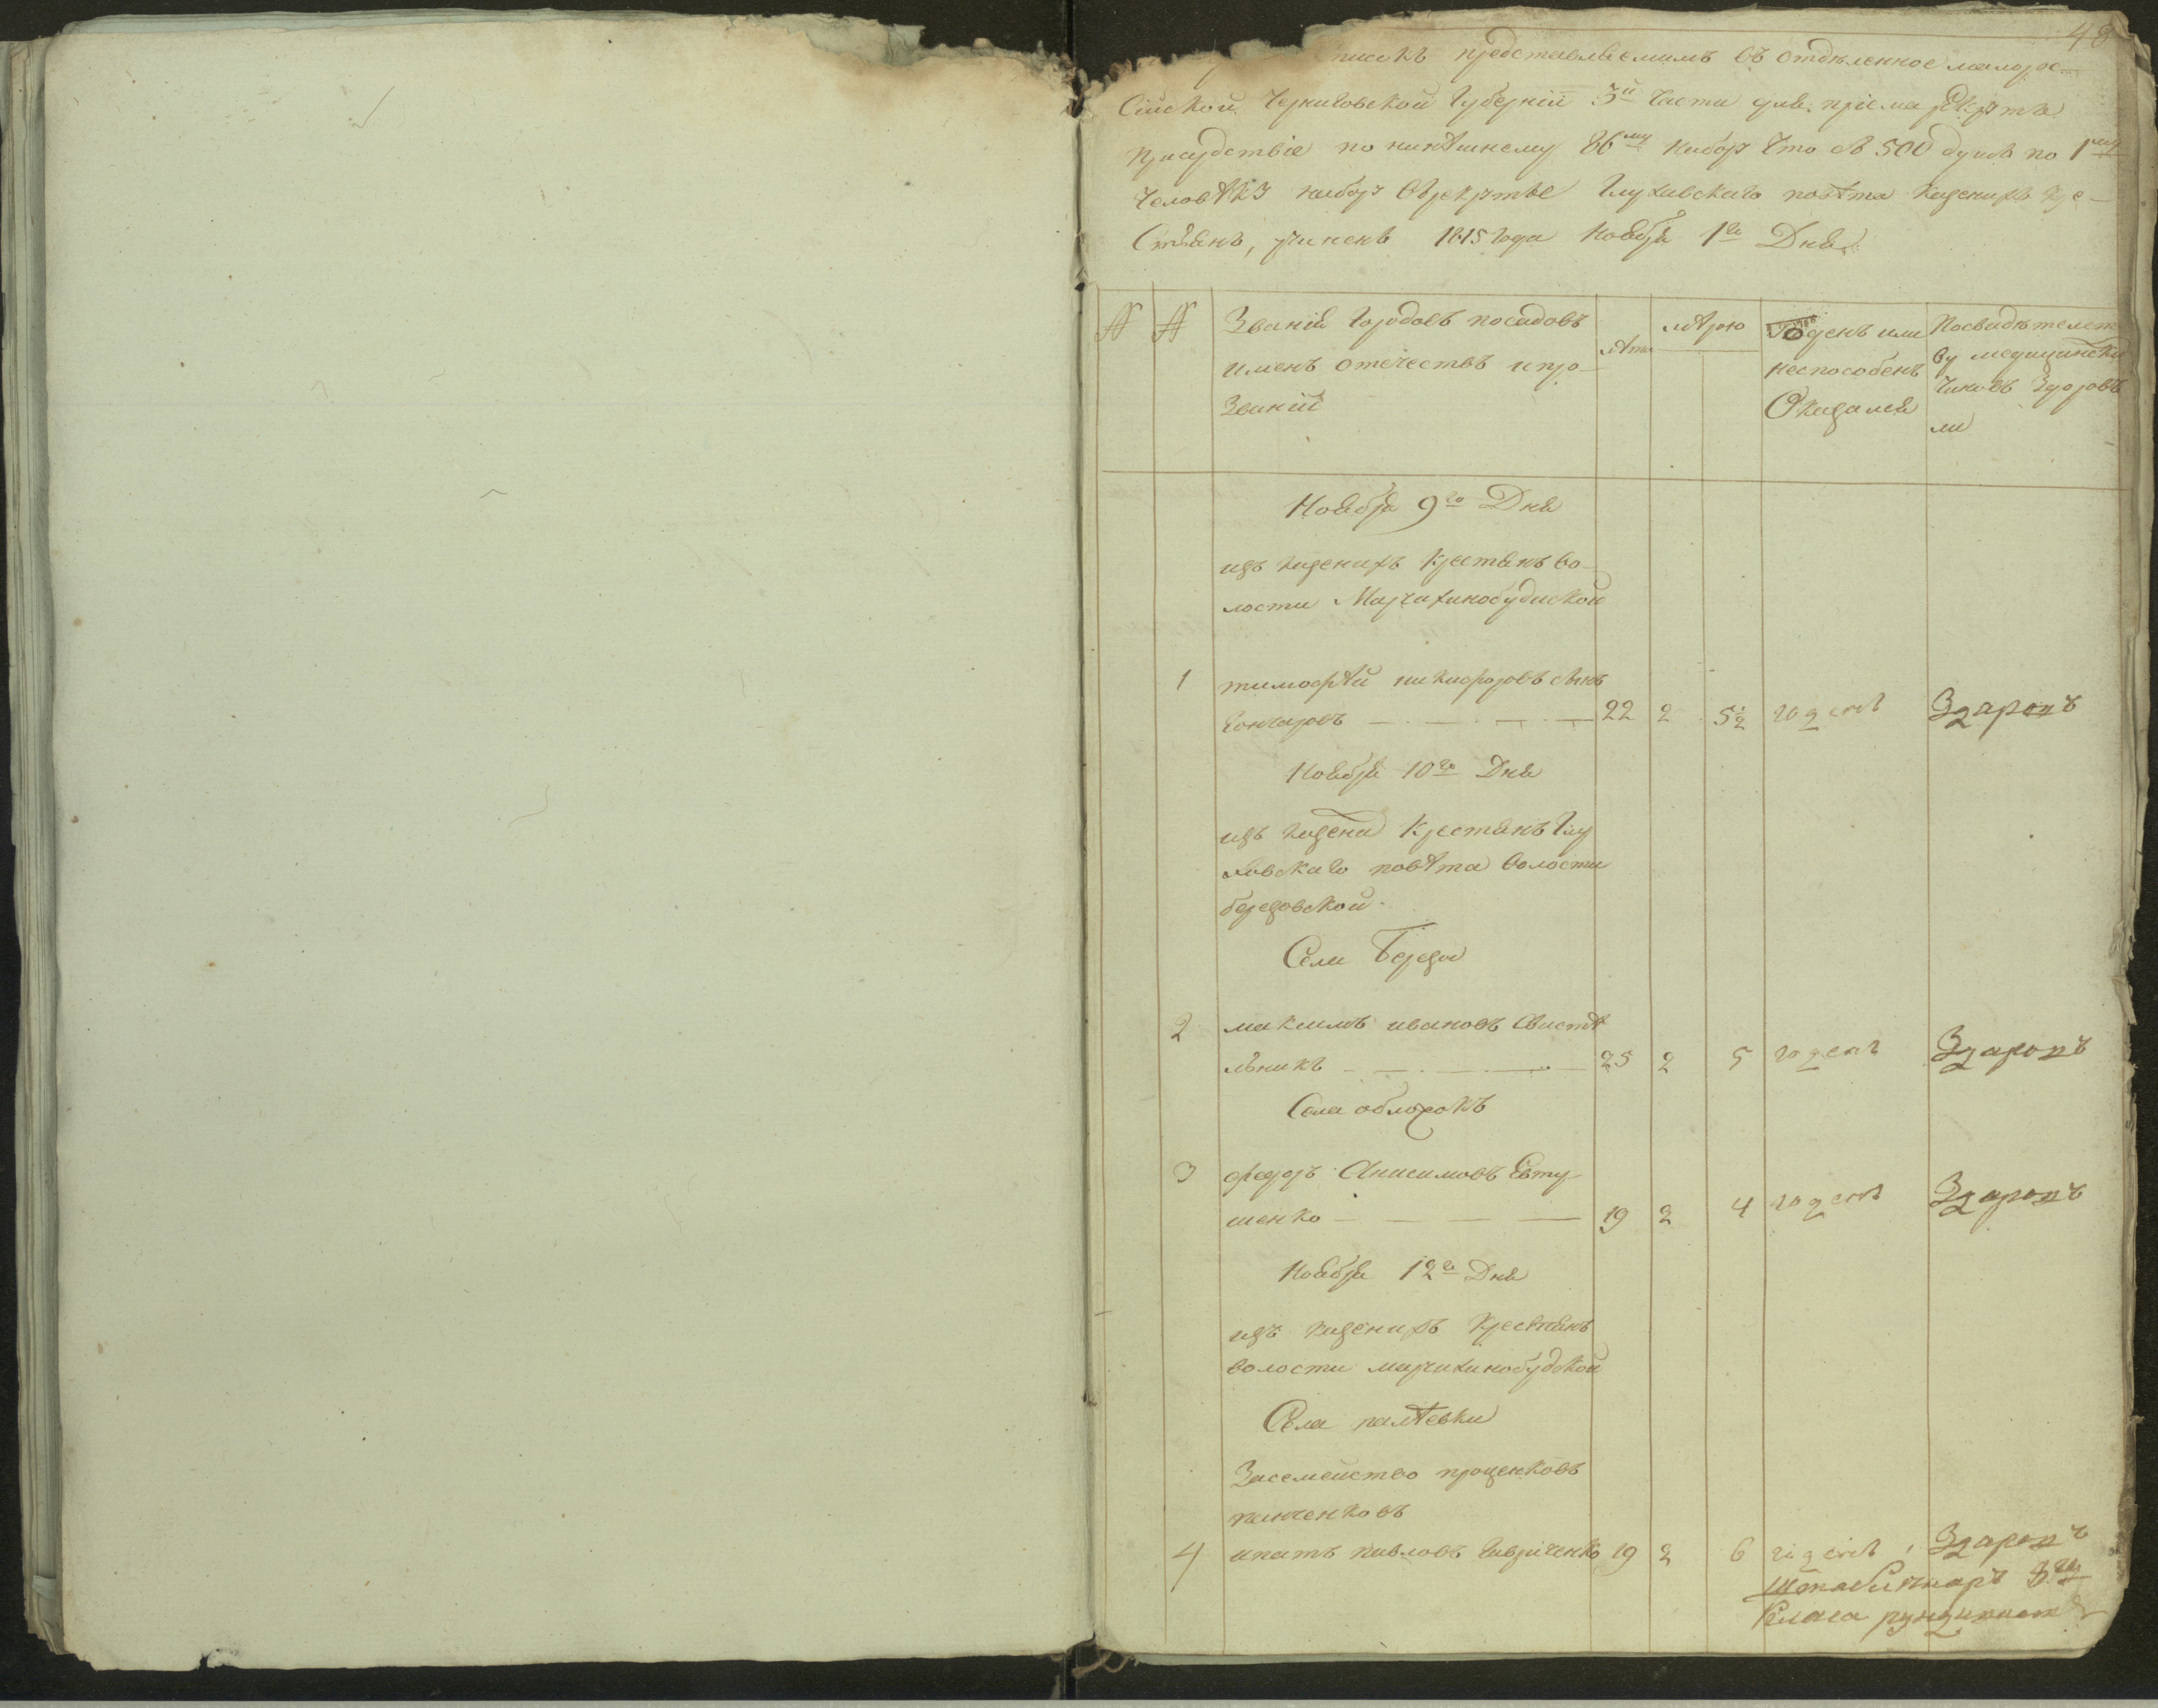 48
писокъ представляемимъ въ отдѣленное малорос-
сійской Черниговской Губерніи 3й части для пріема рекрутъ
присудствіе по нинѣшнему 86му набору что съ 500 душъ по 1му
человѣку набору въ рекрути Глуховского повѣта казенихъ кре-
стьянъ, учиненъ 1815 года Ноября 1го Дня
№ № Званія городовъ посадовъ
именъ отечествъ и про-
званій
лѣта
мѣрою
Годенъ или
неспособенъ
Оказался
По свидѣтелст
ву медицински
чиновъ здоровъ
ли
Ноября 9го Дня
изъ казенихъ крестьянъ во-
лости Марчихинобудиской
1 тимофѣй никифоровъ синъ
Гончаровъ 22 2 5½ годенъ Здаровъ
Ноября 10го Дня
изъ казени крестьянъ Глу
ховскаго повѣта волости
березовской
Села Береза
2 максимъ ивановъ Свистѣ
льникъ 25 2 5 годенъ Здаровъ
Села обложокъ
3 федоръ Анисимовъ Евту-
шенко 19 2 4 годенъ Здаровъ
Ноября 12го Дня
изъ казенихъ крестьянъ
волости марчихинобудской
Села палѣевки
За семейство проценковъ
панченковъ
4 ипатъ павловъ Гавриченко 19 2 6 годенъ Здаровъ
Штаблѣкаръ 8го
Класа